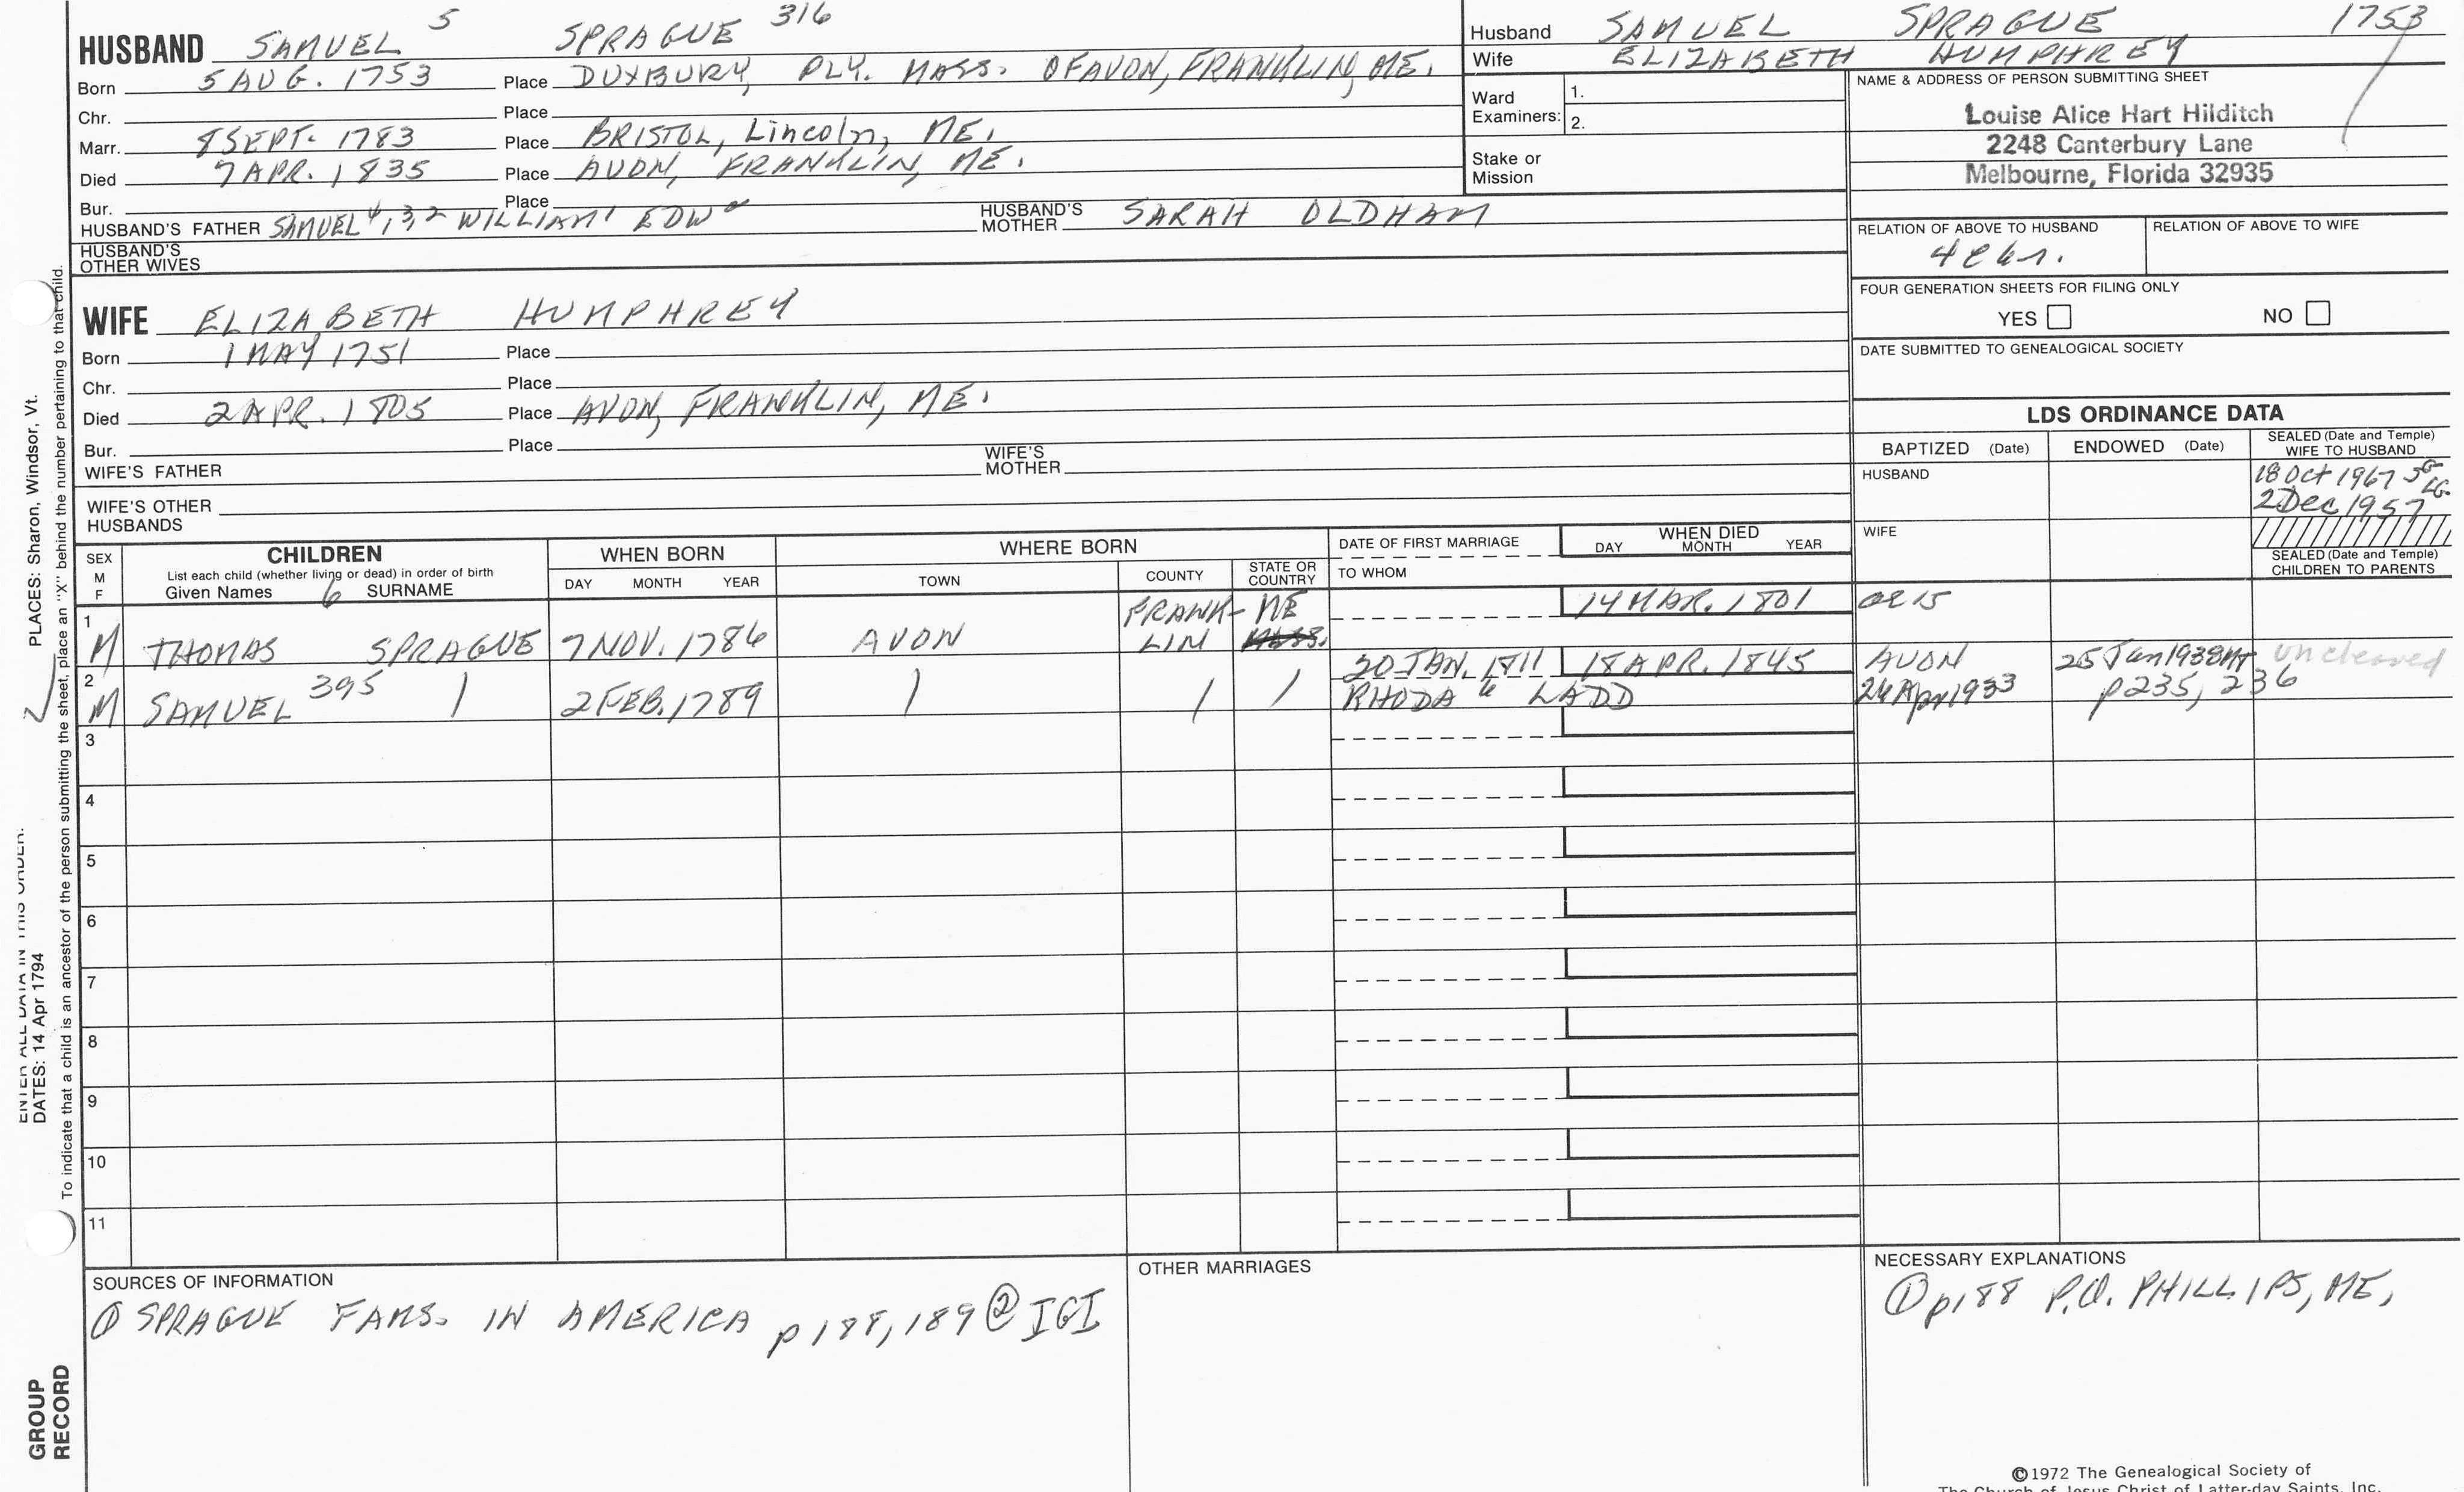 HUSBAND SAMUEL 5 SPRAGUE 316
Born 5 AUG. 1753 Place DUXBURY, PLY. MASS. OF AVON, FRANKLIN, ME.
Chr. Place
Marr. 8 SEPT. 1783 Place BRISTOL, Lincoln, ME.
Died 7 APR. 1835 Place AVON, FRANKLIN, ME.
Bur. Place
HUSBAND'S FATHER SAMUEL 4,3,2 WILLIAM 1 EDW HUSBAND'S MOTHER SARAH OLDHAM
HUSBAND'S OTHER WIVES
WIFE ELIZABETH HUMPHREY
Born 1 MAY 1751 Place
Chr. Place
Died 2 APR. 1805 Place AVON, FRANKLIN, ME.
Bur. Place
WIFE'S FATHER WIFE'S MOTHER
WIFE'S OTHER HUSBANDS
Husband SAMUEL SPRAGUE 1753
Wife ELIZABETH HUMPHREY
Ward Examiners: 1.
2.
Stake or Mission
NAME & ADDRESS OF PERSON SUBMITTING SHEET
Louise Alice Hart Hilditch
2248 Canterbury Lane
Melbourne, Florida 32935
RELATION OF ABOVE TO HUSBAND RELATION OF ABOVE TO WIFE
FOUR GENERATION SHEETS FOR FILING ONLY
YES NO
DATE SUBMITTED TO GENEALOGICAL SOCIETY
LDS ORDINANCE DATA
BAPTIZED (Date) ENDOWED (Date) SEALED (Date and Temple) WIFE TO HUSBAND
HUSBAND 18 Oct 1967
2 Dec 1957
WIFE
SEALED (Date and Temple) CHILDREN TO PARENTS
SEX M F
CHILDREN
List each child (whether living or dead) in order of birth
Given Names 6 SURNAME
WHEN BORN
DAY MONTH YEAR
WHERE BORN
TOWN COUNTY STATE OR COUNTRY
DATE OF FIRST MARRIAGE
TO WHOM
WHEN DIED
DAY MONTH YEAR
1 M THOMAS SPRAGUE 7 NOV. 1786 AVON FRANK-LIN ME MASS. 14 MAR. 1801
2 M SAMUEL 395 2 FEB. 1789 20 JAN. 1811 18 APR. 1845 AVON 25 Jan 1938 uncleared
RHODA LADD 26 Apr 1933 p 235, 236
3
4
5
6
7
8
9
10
11
SOURCES OF INFORMATION
① SPRAGUE FAMS. IN AMERICA p 188, 189 ② IGI
OTHER MARRIAGES
NECESSARY EXPLANATIONS
① p188 P.O. PHILLIPS, ME,
©1972 The Genealogical Society of
The Church of Jesus Christ of Latter-day Saints, Inc.
ENTER ALL DATA IN THIS ORDER:
DATES: 14 Apr 1794 PLACES: Sharon, Windsor, Vt.
To indicate that a child is an ancestor of the person submitting the sheet, place an "X" behind the number pertaining to that child.
GROUP
RECORD